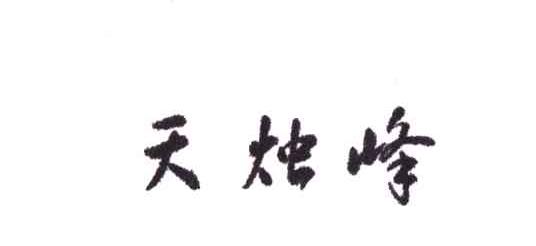 天烛峰